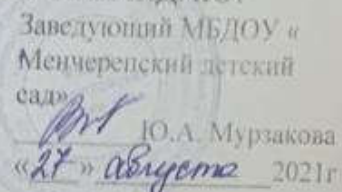 Заведующий МБДОУ «
Менчерепский детский
сад»
Ю.А. Мурзакова
«27» августа 2021г